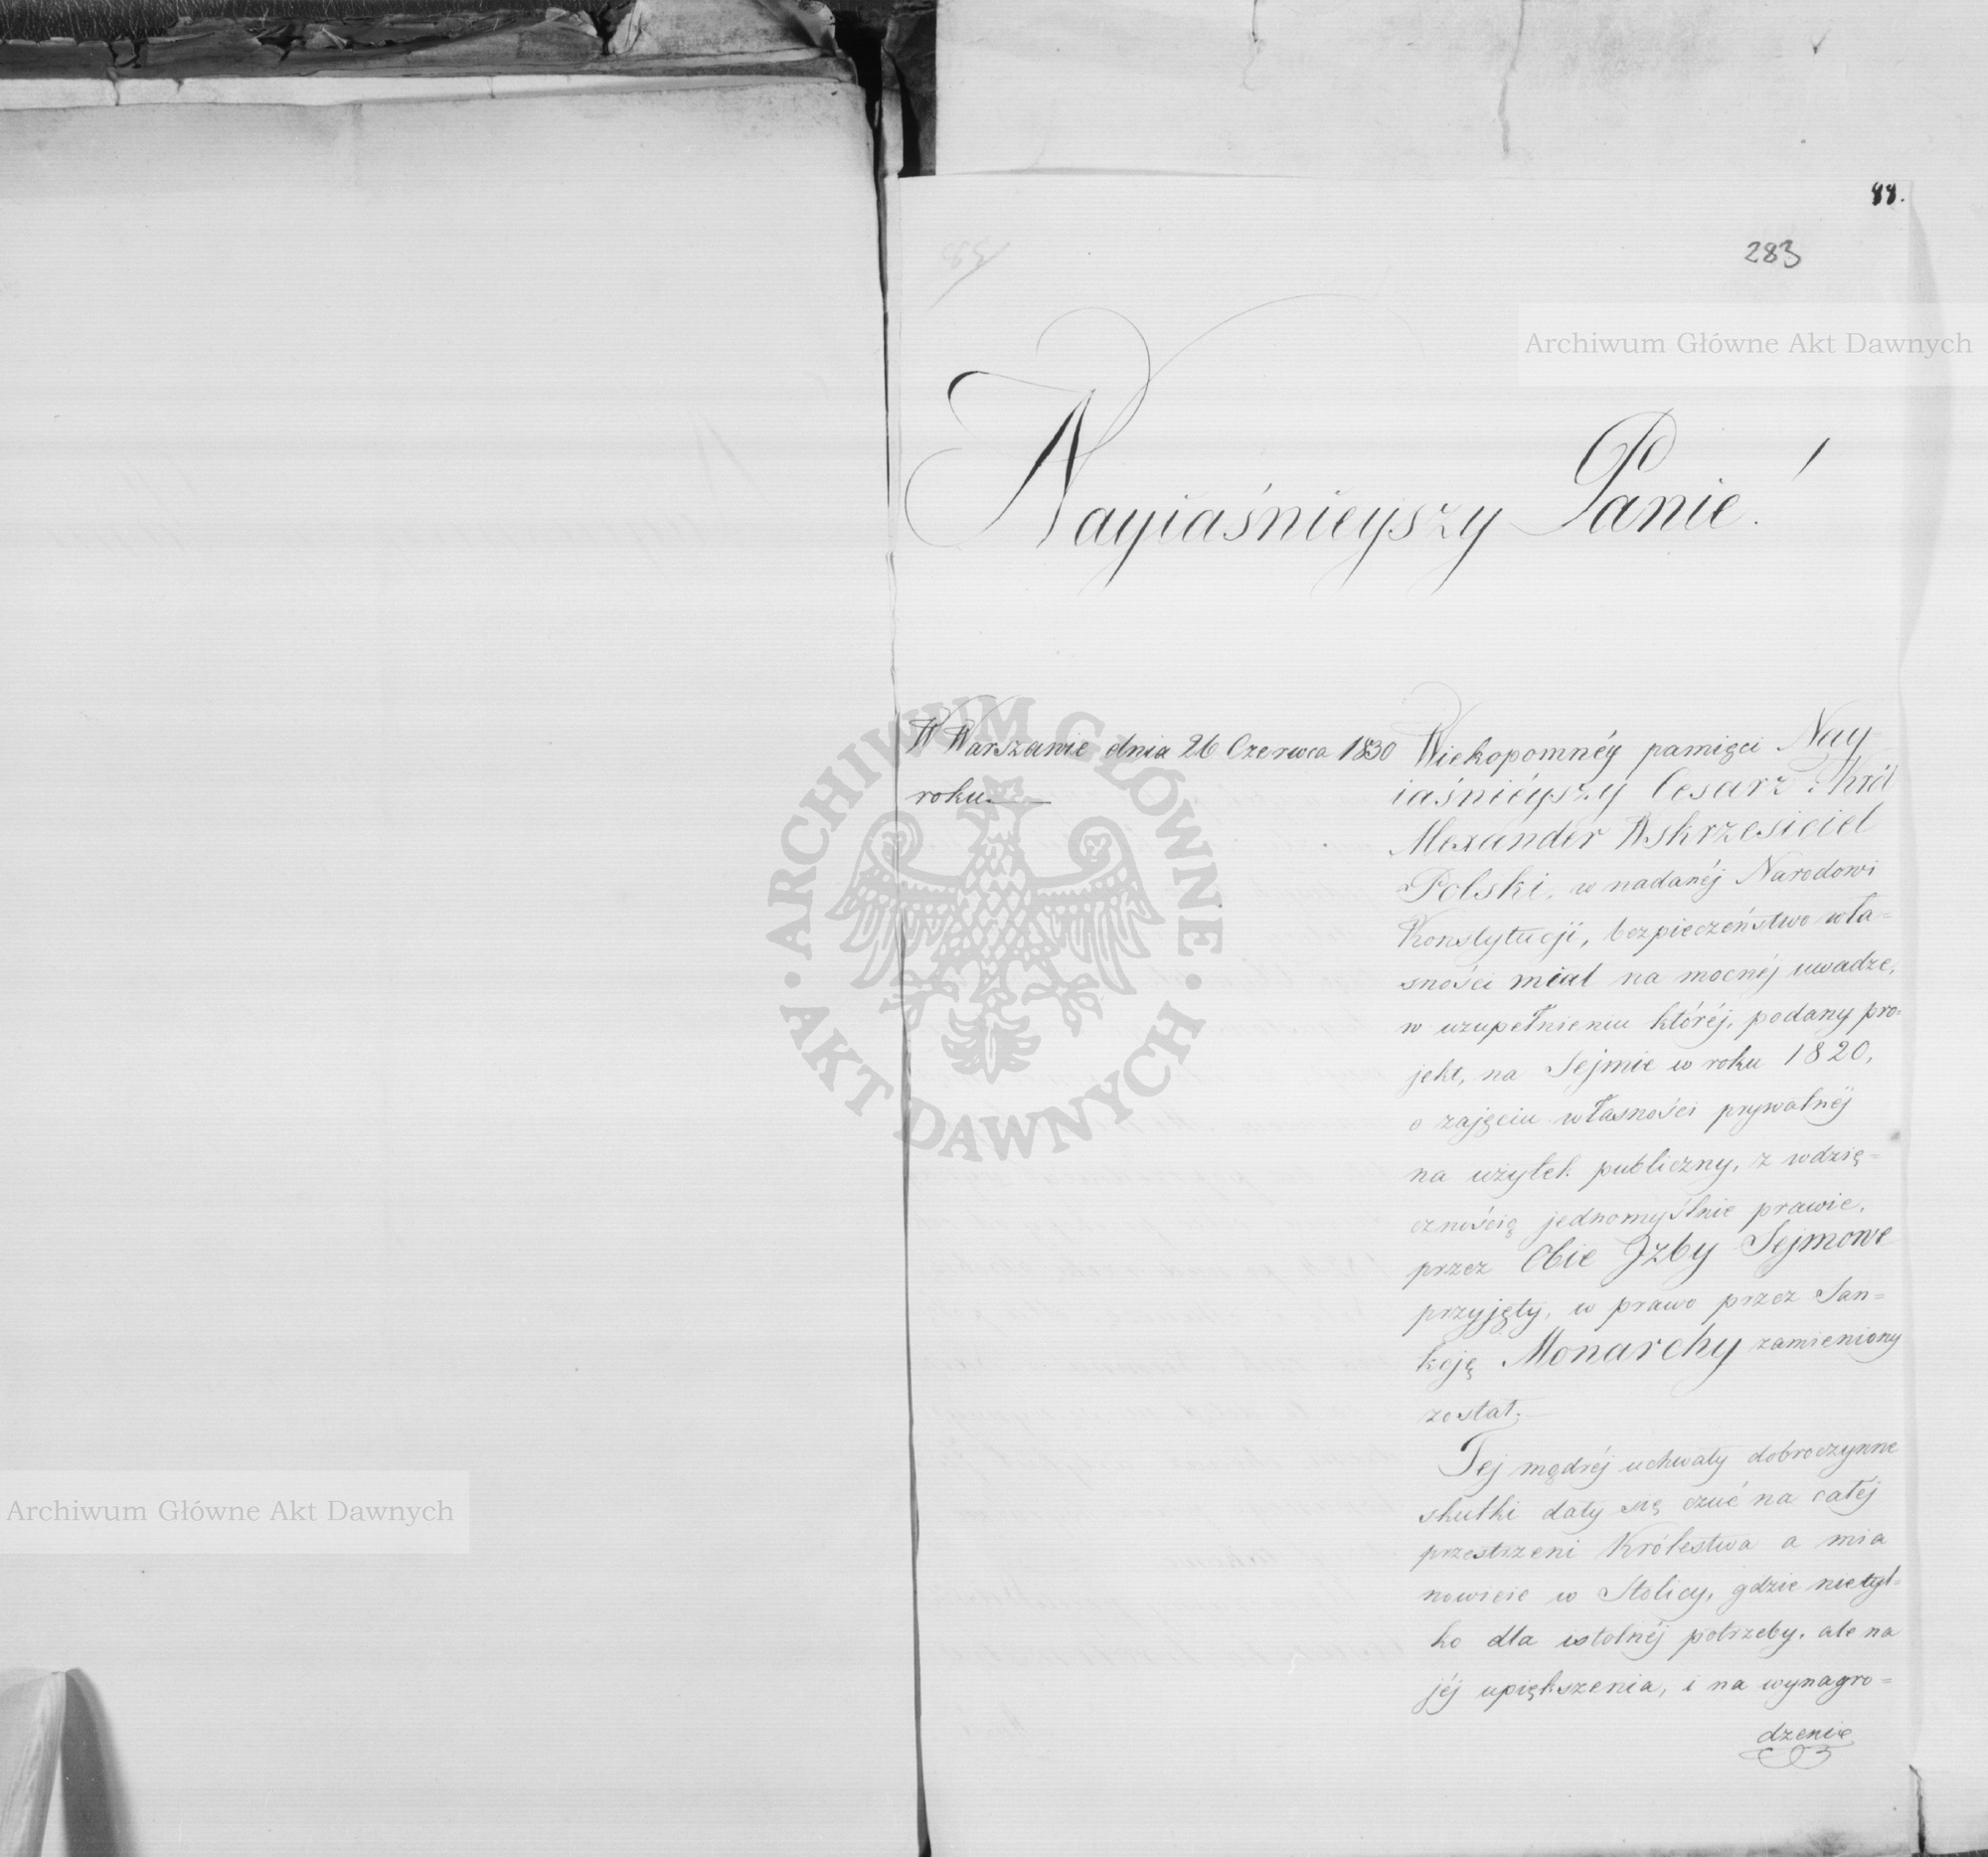 88.
283
Archiwum Główne Akt Dawnych
Nayiaśnieyszy Panie!
W Warszawie dnia 26 Czerwca 1830
roku.
Wiekopomnéy pamięci Nay
iaśniéyszy Cesarz i Król
Alexander Wskrzesiciel
Polski, w nadanéj Narodowi
Konstytucji, bezpieczeństwo wła=
sności miał na mocnéj uwadze,
w uzupełnieniu któréj, podany pro=
jekt, na Sejmie w roku 1820,
o zajęciu własności prywatnéj
na użytek publiczny, z wdzię=
cznością jednomyślnie prawie,
przez Obie Jzby Sejmowe
przyjęty, w prawo przez San=
kcję Monarchy zamieniony
został.
Tej mądréj uchwały dobroczynne
skutki dały się czuć na całéj
przestrzeni Królestwa a mia
nowicie w Stolicy, gdzie nietyl=
ko dla istotnéj potrzeby, ale na
jéj upiększenia, i na wynagro=
dzenie
ARCHIWUM GŁÓWNE · AKT DAWNYCH ·
Archiwum Główne Akt Dawnych